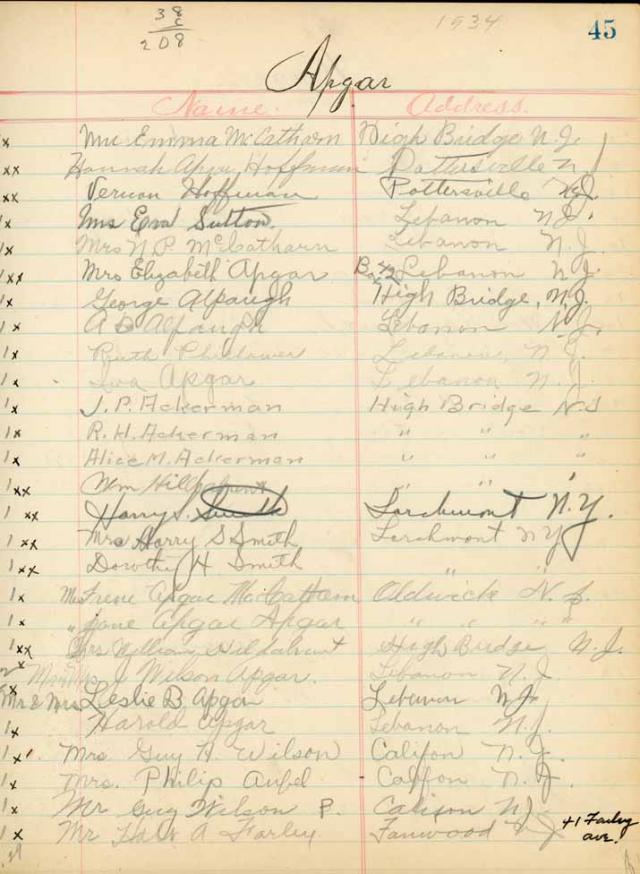 38
6
208
1934
45
Apgar
Name. Address.
x Mrs Emma McCatharn High Bridge N.J.
xx Hannah Apgar Hoffman Pottersville N J
xx Vernon Hoffman Pottersville N.J.
1x Mrs Eva Sutton. Lebanon N.J.
1x Mrs N. P. McCatharn Lebanon N.J.
1xx Mrs Elizabeth Apgar Box 42 Lebanon N.J.
1x George Alpaugh High Bridge, N.J.
1x A B Alpaugh Lebanon N.J.
1x Ruth Philhower Lebanon, N.J.
1x Iva Apgar Lebanon N.J.
1x J.P. Ackerman High Bridge N.J
1x R.H. Ackerman " " "
1x Alice M. Ackerman " " "
1xx Wm " "
1xx Harry S. Smith Larchmont N.Y.
1xx Mrs Harry S Smith Larchmont N Y
1xx Dorothy H Smith " "
1x Mrs Irene Apgar MacCatharn Oldwick N.J.
1x " Jane Apgar Apgar " " " "
1xx Mrs William Hildebrant High Bridge N.J.
J Wilson Apgar. Lebanon N.J.
x Mr & Mrs Leslie B. Apgar Lebanon N.J.
1x Harold Apgar Lebanon N.J.
1x Mrs Guy H. Wilson Califon N.J.
1x Mrs. Philip Aubel Califon N.J.
1x Mr Guy Wilson P. Califon N.J.
1x Mr A Farley Fanwood N J 41 Farley
ave.